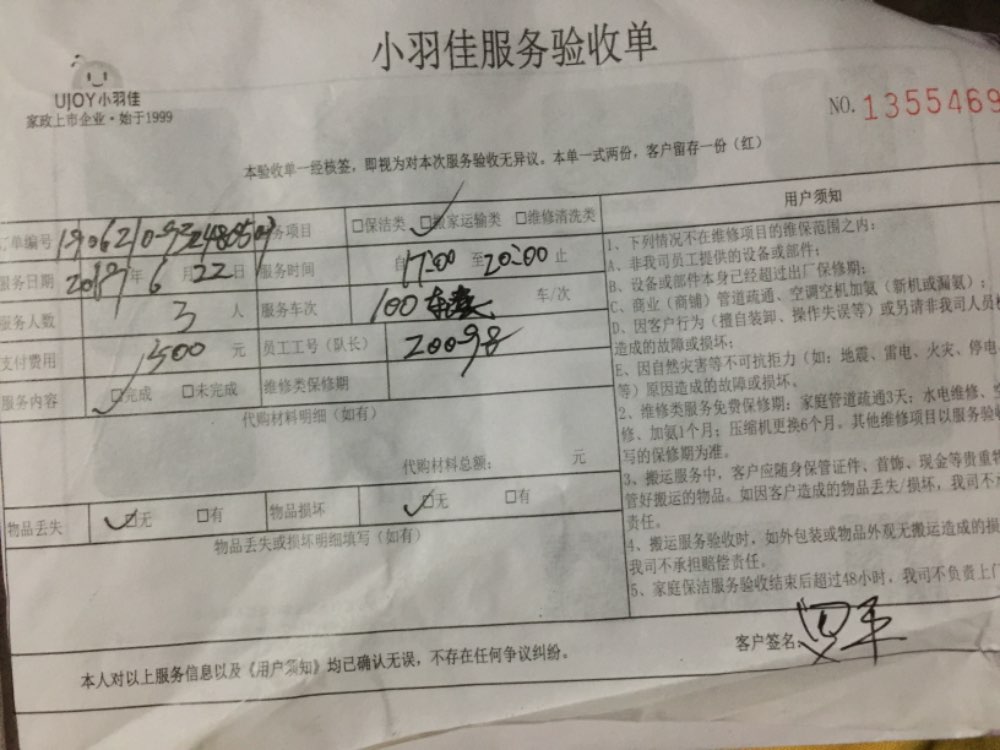 小羽佳服务验收单
UJOY小羽佳
家政上市企业·始于1999
NO. 1355469
本验收单一经核签，即视为对本次服务验收无异议。本单一式两份，客户留存一份（红）
订单编号 服务项目 □保洁类 □搬家运输类 □维修清洗类
服务日期 2019年 6月 22日 服务时间 自 17:00 至 20:00 止
服务人数 3 人 服务车次 100 车/次
支付费用 300 元 员工工号（队长） 20098
服务内容 □完成 □未完成 维修类保修期
代购材料明细（如有）
代购材料总额： 元
物品丢失 □无 □有 物品损坏 □无 □有
物品丢失或损坏明细填写（如有）
用户须知
1、下列情况不在维修项目的维保范围之内：
A、非我司员工提供的设备或部件；
B、设备或部件本身已经超过出厂保修期；
C、商业（商铺）管道疏通、空调空机加氨（新机或漏氨）；
D、因客户行为（擅自装卸、操作失误等）或另请非我司人员
造成的故障或损坏；
E、因自然灾害等不可抗拒力（如：地震、雷电、火灾、停电
等）原因造成的故障或损坏。
2、维修类服务免费保修期：家庭管道疏通3天；水电维修、
修、加氨1个月；压缩机更换6个月。其他维修项目以服务验
写的保修期为准。
3、搬运服务中，客户应随身保管证件、首饰、现金等贵重物
管好搬运的物品。如因客户造成的物品丢失/损坏，我司不
责任。
4、搬运服务验收时，如外包装或物品外观无搬运造成的损
我司不承担赔偿责任。
5、家庭保洁服务验收结束后超过48小时，我司不负责上门
本人对以上服务信息以及《用户须知》均已确认无误，不存在任何争议纠纷。
客户签名：